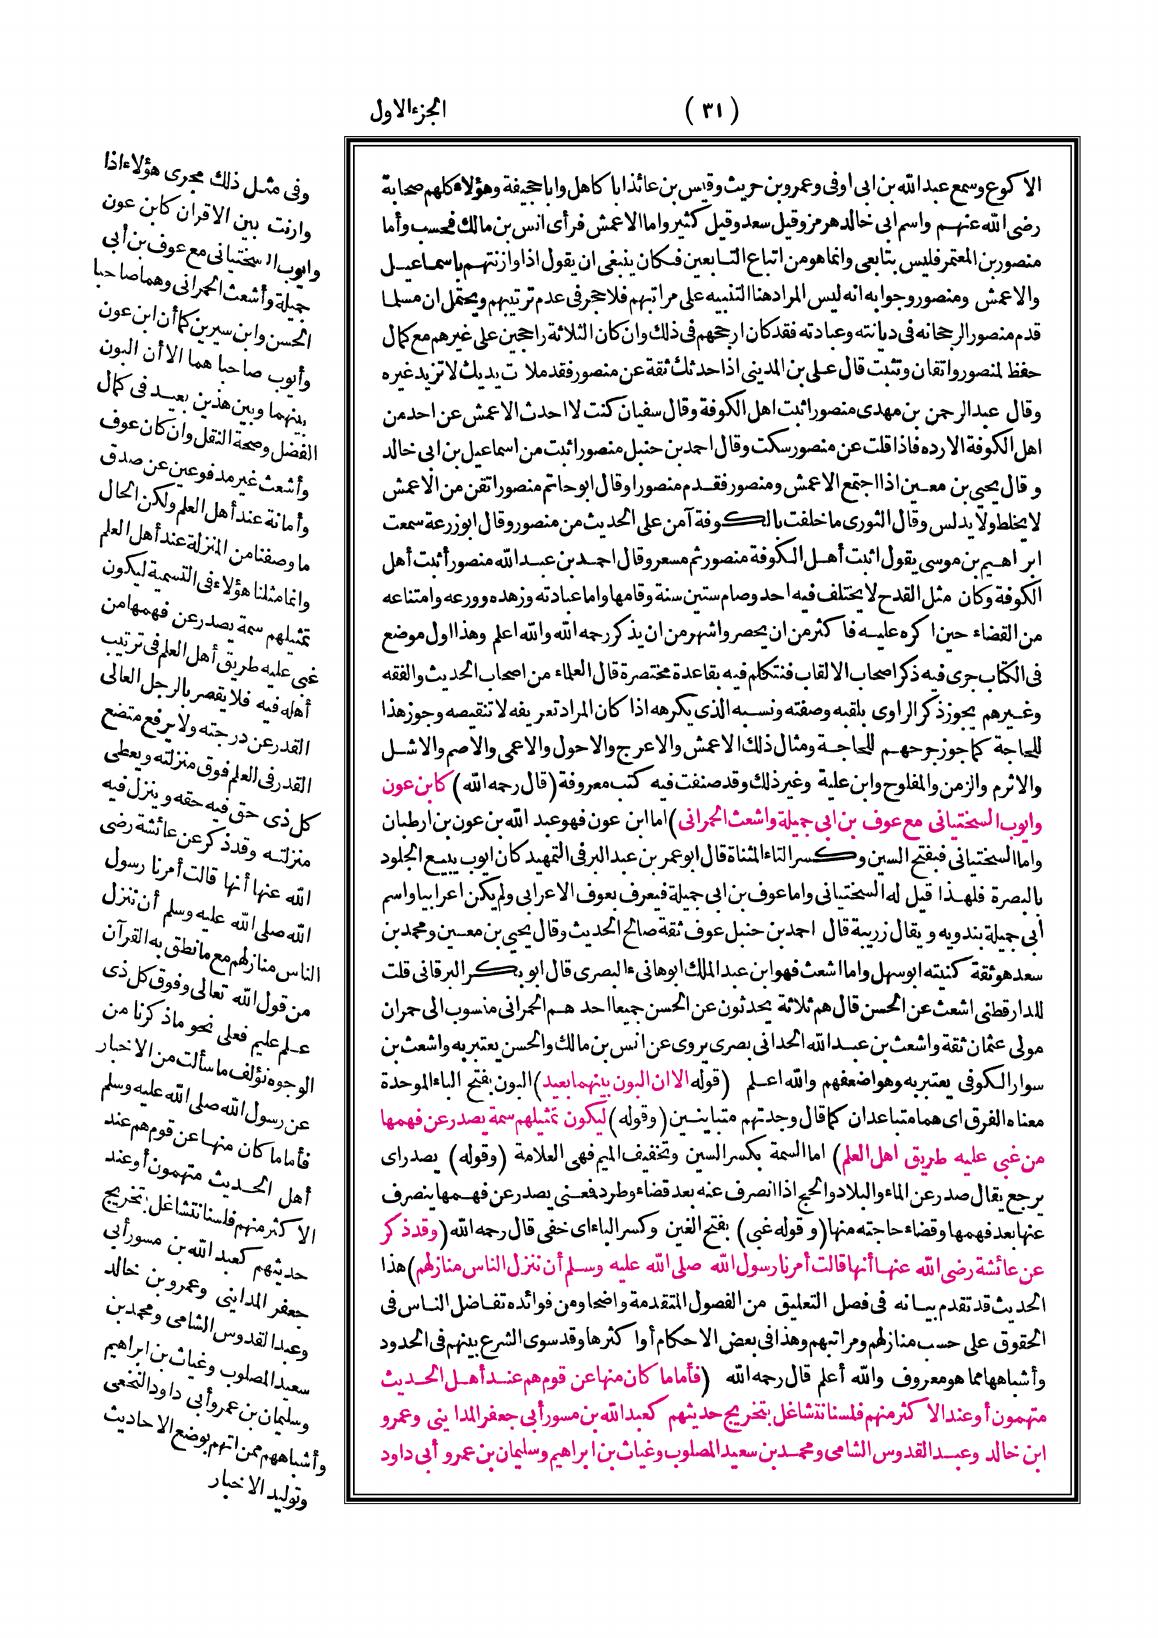 الجزء الاول
( ٣١ )
الاكوع وسمع عبدالله بن ابى اوفى وعمرو بن حريث وقيس بن عائذ ابا كاهل وابا جحيفة وهؤلاء كلهم صحابة
رضى الله عنهم واسم ابى خالد هرمز وقيل سعد وقيل كثير واما الاعمش فرأى انس بن مالك فحسب وأما
منصور بن المعتمر فليس بتابعى وانما هو من اتباع التابعين فكان ينبغى ان يقول اذا وازنتهم باسماعيل
والاعمش ومنصور وجوابه انه ليس المراد هنا التنبيه على مراتبهم فلا حجر فى عدم ترتيبهم ويحتمل ان مسلما
قدم منصور الرجحانه فى ديانته وعبادته فقد كان ارجحهم فى ذلك وان كان الثلاثة راجحين على غيرهم مع كمال
حفظ لمنصور واتقان وتثبت قال على بن المدينى اذا حدثك ثقة عن منصور فقد ملات يديك لا تريد غيره
وقال عبدالرحمن بن مهدى منصور اثبت اهل الكوفة وقال سفيان كنت لا احدث الاعمش عن احد من
اهل الكوفة الا رده فاذا قلت عن منصور سكت وقال احمد بن حنبل منصور اثبت من اسماعيل بن ابى خالد
و قال يحيى بن معين اذا اجتمع الاعمش ومنصور فقدم منصورا وقال ابو حاتم منصور اتقن من الاعمش
لا يخلط ولا يدلس وقال الثورى ما خلفت بالكوفة آمن على الحديث من منصور وقال ابو زرعة سمعت
ابراهيم بن موسى يقول اثبت أهل الكوفة منصور ثم مسعر وقال احمد بن عبد الله منصور أثبت أهل
الكوفة وكان مثل القدح لا يختلف فيه احد وصام ستين سنة وقامها واما عبادته وزهده وورعه وامتناعه
من القضاء حين اكره عليه فاكثر من ان يحصر واشهر من ان يذكر رحمه الله والله اعلم وهذا اول موضع
فى الكتاب جرى فيه ذكر اصحاب الالقاب فنتكلم فيه بقاعدة مختصرة قال العلماء من اصحاب الحديث والفقه
وغيرهم يجوز ذكر الراوى بلقبه وصفته ونسبه الذى يكرهه اذا كان المراد تعريفه لا تنقيصه وجوز هذا
للحاجة كما جوز جرحهم للحاجة ومثال ذلك الاعمش والاعرج والاحول والاعمى والاصم والاشل
والاثرم والزمن والمفلوح وابن علية وغير ذلك وقد صنفت فيه كتب معروفة (قال رحمه الله) كابن عون
وايوب السختيانى مع عوف بن ابى جميلة واشعث الحمرانى) اما ابن عون فهو عبد الله بن عون بن ارطبان
واما السختيانى فبفتح السين وكسر التاء المثناة قال ابو عمر بن عبد البر فى التمهيد كان ايوب يبيع الجلود
بالبصرة فلهذا قيل له السختيانى واما عوف بن ابى جميلة فيعرف بعوف الاعرابى ولم يكن اعرابيا واسم
أبى جميلة بندويه و يقال زريبة قال احمد بن حنبل عوف ثقة صالح الحديث وقال يحيى بن معين ومحمد بن
سعد هو ثقة كنيته ابو سهل واما اشعث فهو ابن عبد الملك ابو هانىء البصرى قال ابو بكر البرقانى قلت
للدارقطنى اشعث عن الحسن قال هم ثلاثة يحدثون عن الحسن جميعا احدهم الحمرانى منسوب الى حمران
مولى عثمان ثقة واشعث بن عبد الله الحدانى بصرى يروى عن انس بن مالك والحسن يعتبر به واشعث بن
سوار الكوفى يعتبر به وهو اضعفهم والله اعلم (قوله الا ان البون بينهما بعيد) البون بفتح الباء الموحدة
معناه الفرق اى هما متباعدان كما قال وجدتهم متباينين (وقوله) ليكون تمثيلهم سمة يصدر عن فهمها
من غبى عليه طريق اهل العلم) اما السمة بكسر السين وتخفيف الميم فهى العلامة (وقوله) يصدر اى
يرجع يقال صدر عن الماء والبلاد والحج اذا انصرف عنه بعد قضاء وطره فمعنى يصدر عن فهمها ينصرف
عنها بعد فهمها وقضاء حاجته منها (و قوله غبى) بفتح الغين وكسر الباء اى خفى قال رحمه الله (وقد ذكر
عن عائشة رضى الله عنها أنها قالت أمرنا رسول الله صلى الله عليه وسلم أن ننزل الناس منازلهم) هذا
الحديث قد تقدم بيانه فى فصل التعليق من الفصول المتقدمة واضحا ومن فوائده تفاضل الناس فى
الحقوق على حسب منازلهم ومراتبهم وهذا فى بعض الاحكام أو اكثرها وقد سوى الشرع بينهم فى الحدود
وأشباهها مما هو معروف والله أعلم قال رحمه الله (فأما ما كان منها عن قوم هم عند أهل الحديث
متهمون أو عند الاكثر منهم فلسنا نتشاغل بتخريج حديثهم كعبدالله بن مسور أبى جعفر المداينى وعمرو
ابن خالد وعبد القدوس الشامى ومحمد بن سعيد المصلوب وغياث بن ابراهيم وسليمان بن عمرو أبى داود
وفى مثل ذلك مجرى هؤلاء اذا
وازنت بين الاقران كابن عون
وايوب السختيانى مع عوف بن أبى
جميلة وأشعث الحمرانى وهما صاحبا
الحسن وابن سيرين كما أن ابن عون
وأيوب صاحبا هما الا أن البون
بينهما وبين هذين بعيد فى كمال
الفضل وصحة النقل وان كان عوف
وأشعث غير مدفوعين عن صدق
وأمانة عند أهل العلم ولكن الحال
ما وصفنا من المنزلة عند أهل العلم
وانما مثلنا هؤلاء فى التسمية ليكون
تمثيلهم سمة يصدر عن فهمها من
غبى عليه طريق أهل العلم فى ترتيب
أهله فيه فلا يقصر بالرجل العالى
القدر عن درجته ولا يرفع متضع
القدر فى العلم فوق منزلته ويعطى
كل ذى حق فيه حقه و ينزل فيه
منزلته وقد ذكر عن عائشة رضى
الله عنها أنها قالت أمرنا رسول
الله صلى الله عليه وسلم أن ننزل
الناس منازلهم مع ما نطق به القرآن
من قول الله تعالى وفوق كل ذى
علم عليم فعلى نحو ماذكرنا من
الوجوه نؤلف ما سألت من الاخبار
عن رسول الله صلى الله عليه وسلم
فأما ما كان منها عن قوم هم عند
أهل الحديث متهمون أو عند
الاكثر منهم فلسنا نتشاغل بتخريج
حديثهم كعبد الله بن مسور أبى
جعفر المداينى وعمرو بن خالد
وعبد القدوس الشامى ومحمد بن
سعيد المصلوب وغياث بن ابراهيم
وسليمان بن عمرو أبى داود النخعى
وأشباههم ممن اتهم بوضع الاحاديث
وتوليد الاخبار